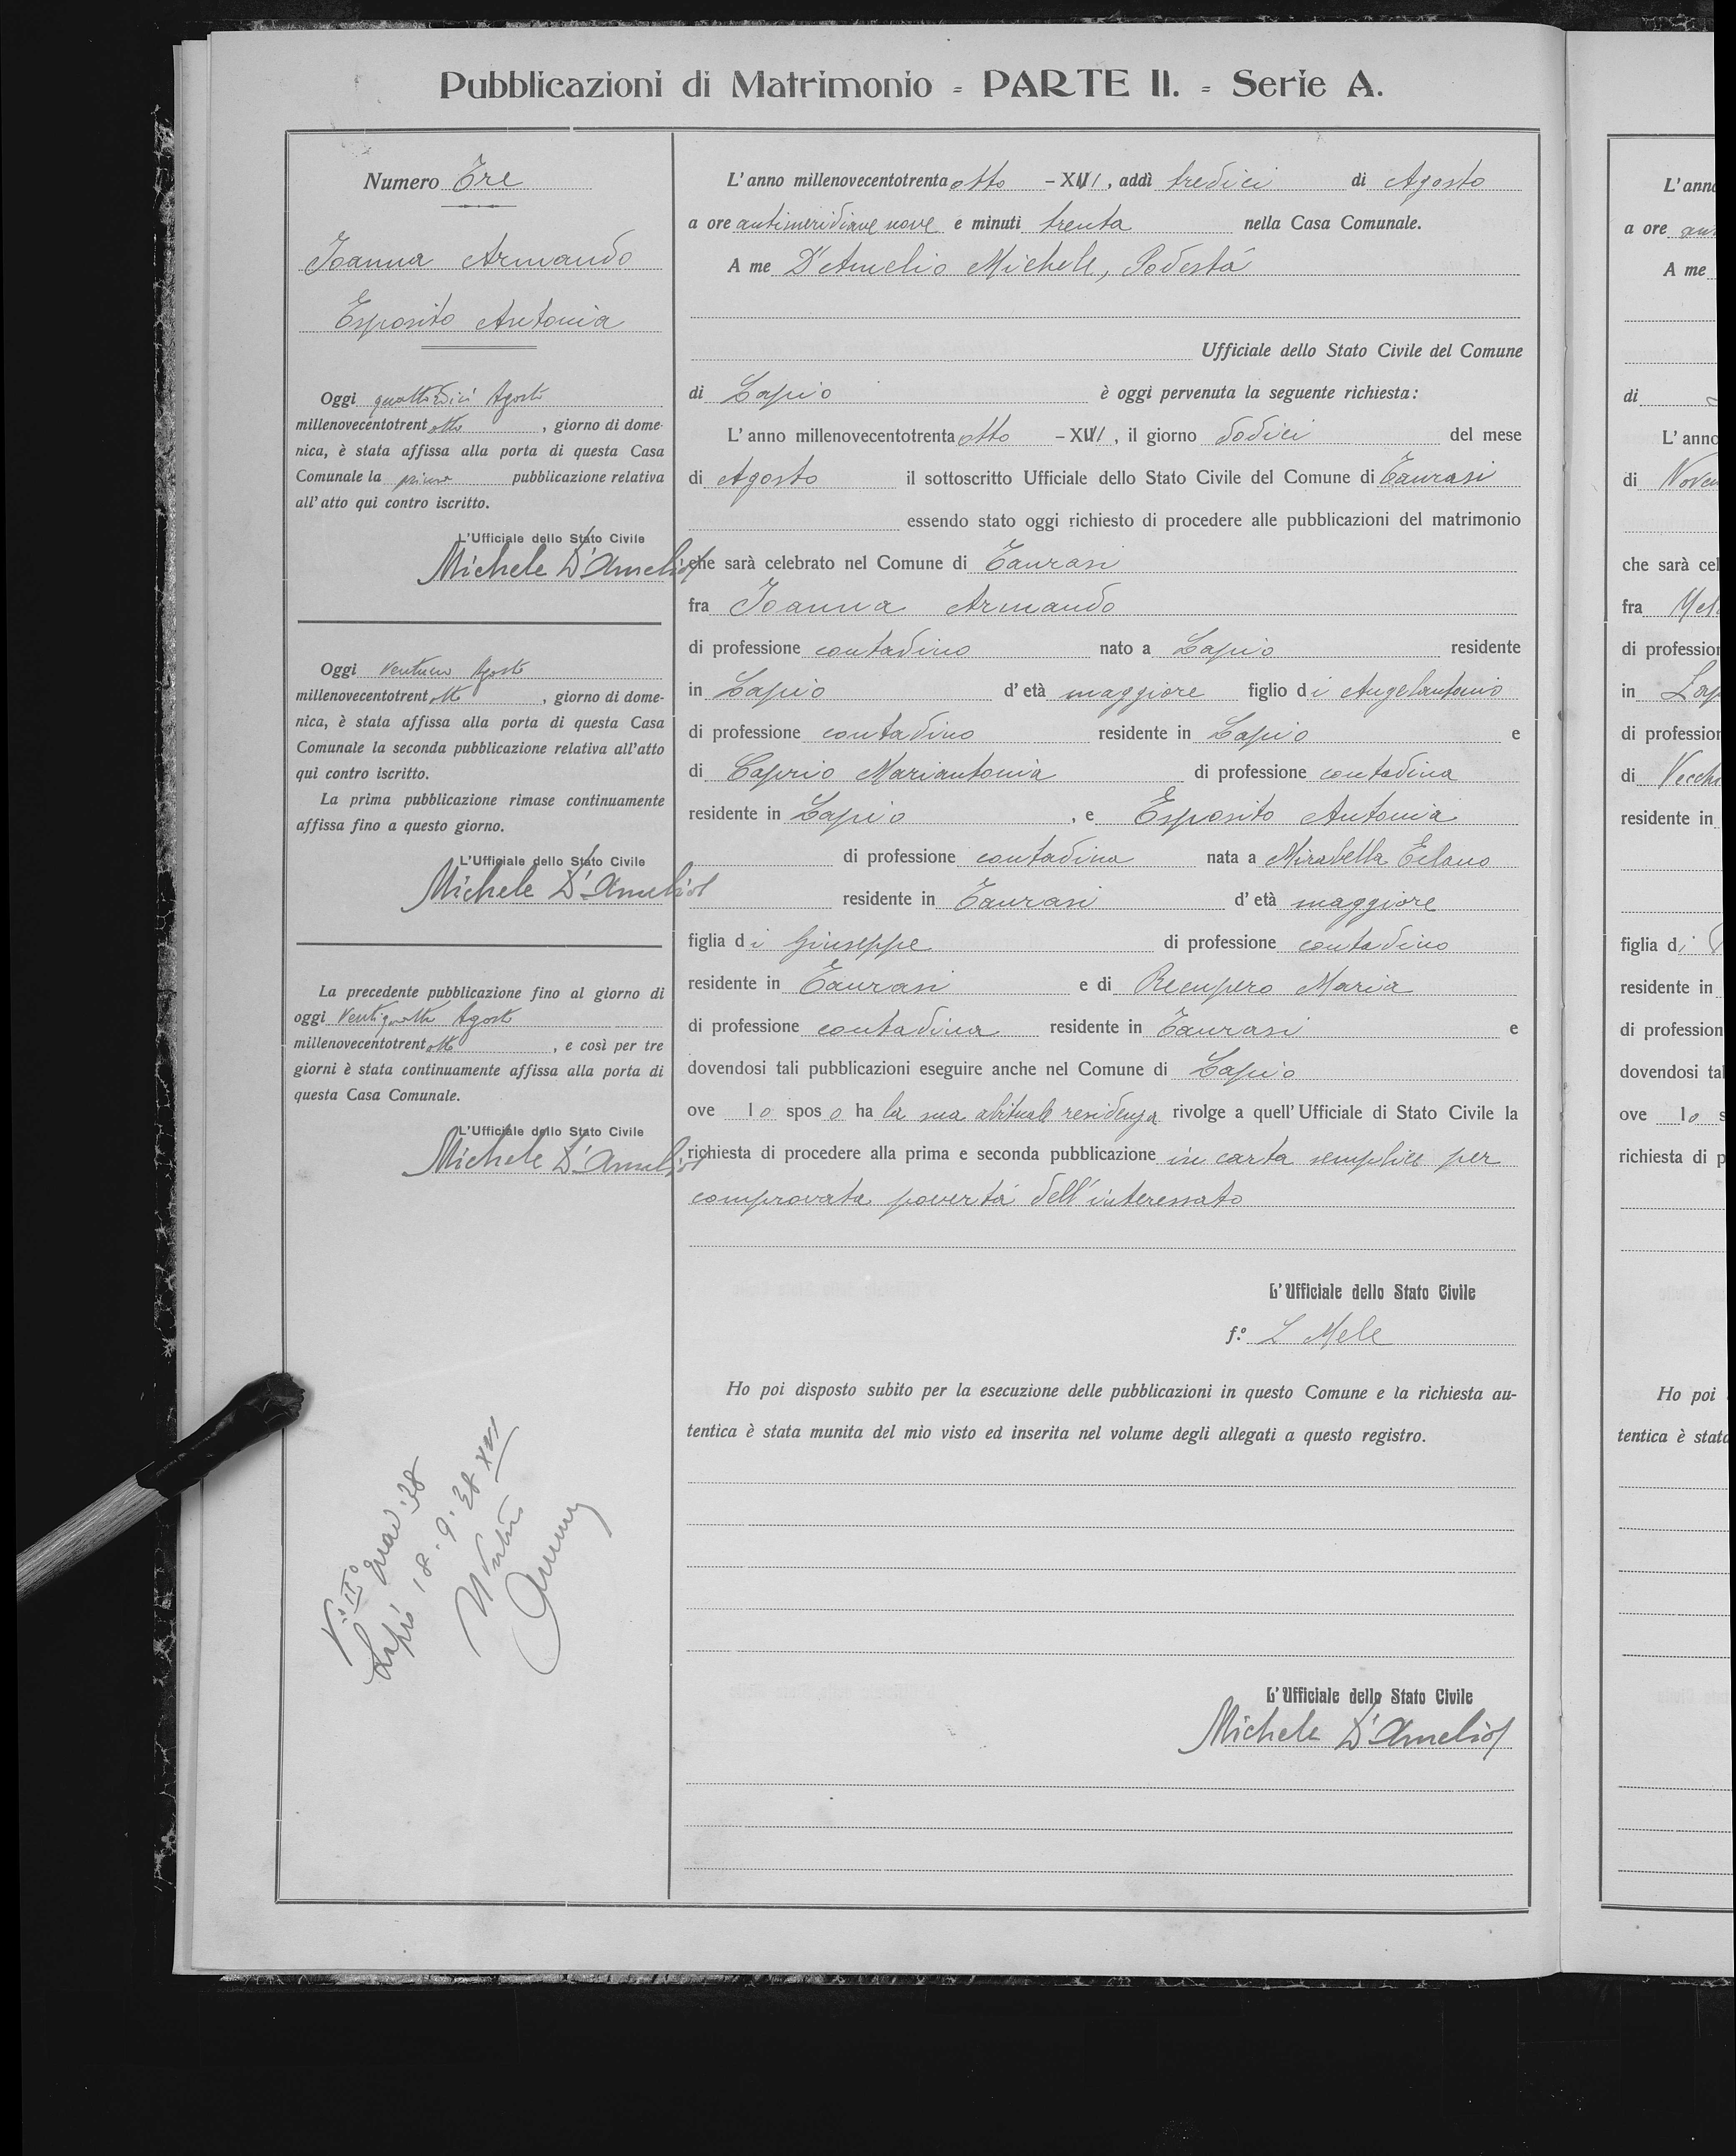 Pubblicazioni di Matrimonio = PARTE II. = Serie A.
Numero Tre
Ioanna Armando
Esposito Antonia
Oggi quattordici Agosto
millenovecentotrent otto , giorno di dome-
nica, è stata affissa alla porta di questa Casa
Comunale la prima pubblicazione relativa
all'atto qui contro iscritto.
L'Ufficiale dello Stato Civile
Michele D'Amelio
Oggi ventuno Agosto
millenovecentotrent otto , giorno di dome-
nica, è stata affissa alla porta di questa Casa
Comunale la seconda pubblicazione relativa all'atto
qui contro iscritto.
La prima pubblicazione rimase continuamente
affissa fino a questo giorno.
L'Ufficiale dello Stato Civile
Michele D'Amelio
La precedente pubblicazione fino al giorno di
oggi Ventiquattro Agosto
millenovecentotrent otto , e così per tre
giorni è stata continuamente affissa alla porta di
questa Casa Comunale.
L'Ufficiale dello Stato Civile
Michele D'Amelio
Lapio 18.9.38 XVI
L'anno millenovecentotrenta otto - XVI, addì tredici di Agosto
a ore antimeridiane nove e minuti trenta nella Casa Comunale.
A me D'Amelio Michele, Podestà
Ufficiale dello Stato Civile del Comune
di Lapio è oggi pervenuta la seguente richiesta:
L'anno millenovecentotrenta otto - XVI, il giorno dodici del mese
di Agosto il sottoscritto Ufficiale dello Stato Civile del Comune di Taurasi
essendo stato oggi richiesto di procedere alle pubblicazioni del matrimonio
che sarà celebrato nel Comune di Taurasi
fra Ioanna Armando
di professione contadino nato a Lapio residente
in Lapio d'età maggiore figlio di Angelantonio
di professione contadino residente in Lapio e
di Caprio Mariantonia di professione contadina
residente in Lapio , e Esposito Antonia
di professione contadina nata a Mirabella Eclano
residente in Taurasi d'età maggiore
figlia di Giuseppe di professione contadino
residente in Taurasi e di Recupero Maria
di professione contadina residente in Taurasi e
dovendosi tali pubblicazioni eseguire anche nel Comune di Lapio
ove lo sposo ha la sua abituale residenza rivolge a quell'Ufficiale di Stato Civile la
richiesta di procedere alla prima e seconda pubblicazione in carta semplice per
comprovata povertà dell'interessato
L'Ufficiale dello Stato Civile
f.º L Mele
Ho poi disposto subito per la esecuzione delle pubblicazioni in questo Comune e la richiesta au-
tentica è stata munita del mio visto ed inserita nel volume degli allegati a questo registro.
L'Ufficiale dello Stato Civile
Michele D'Amelio
L'ann
a ore
A me
di
L'anno
di
che sarà cel
fra
di profession
in Lap
di profession
di Vecch
residente in
figlia di
residente in
di profession
dovendosi tal
ove lo s
richiesta di p
Ho poi
tentica è stat